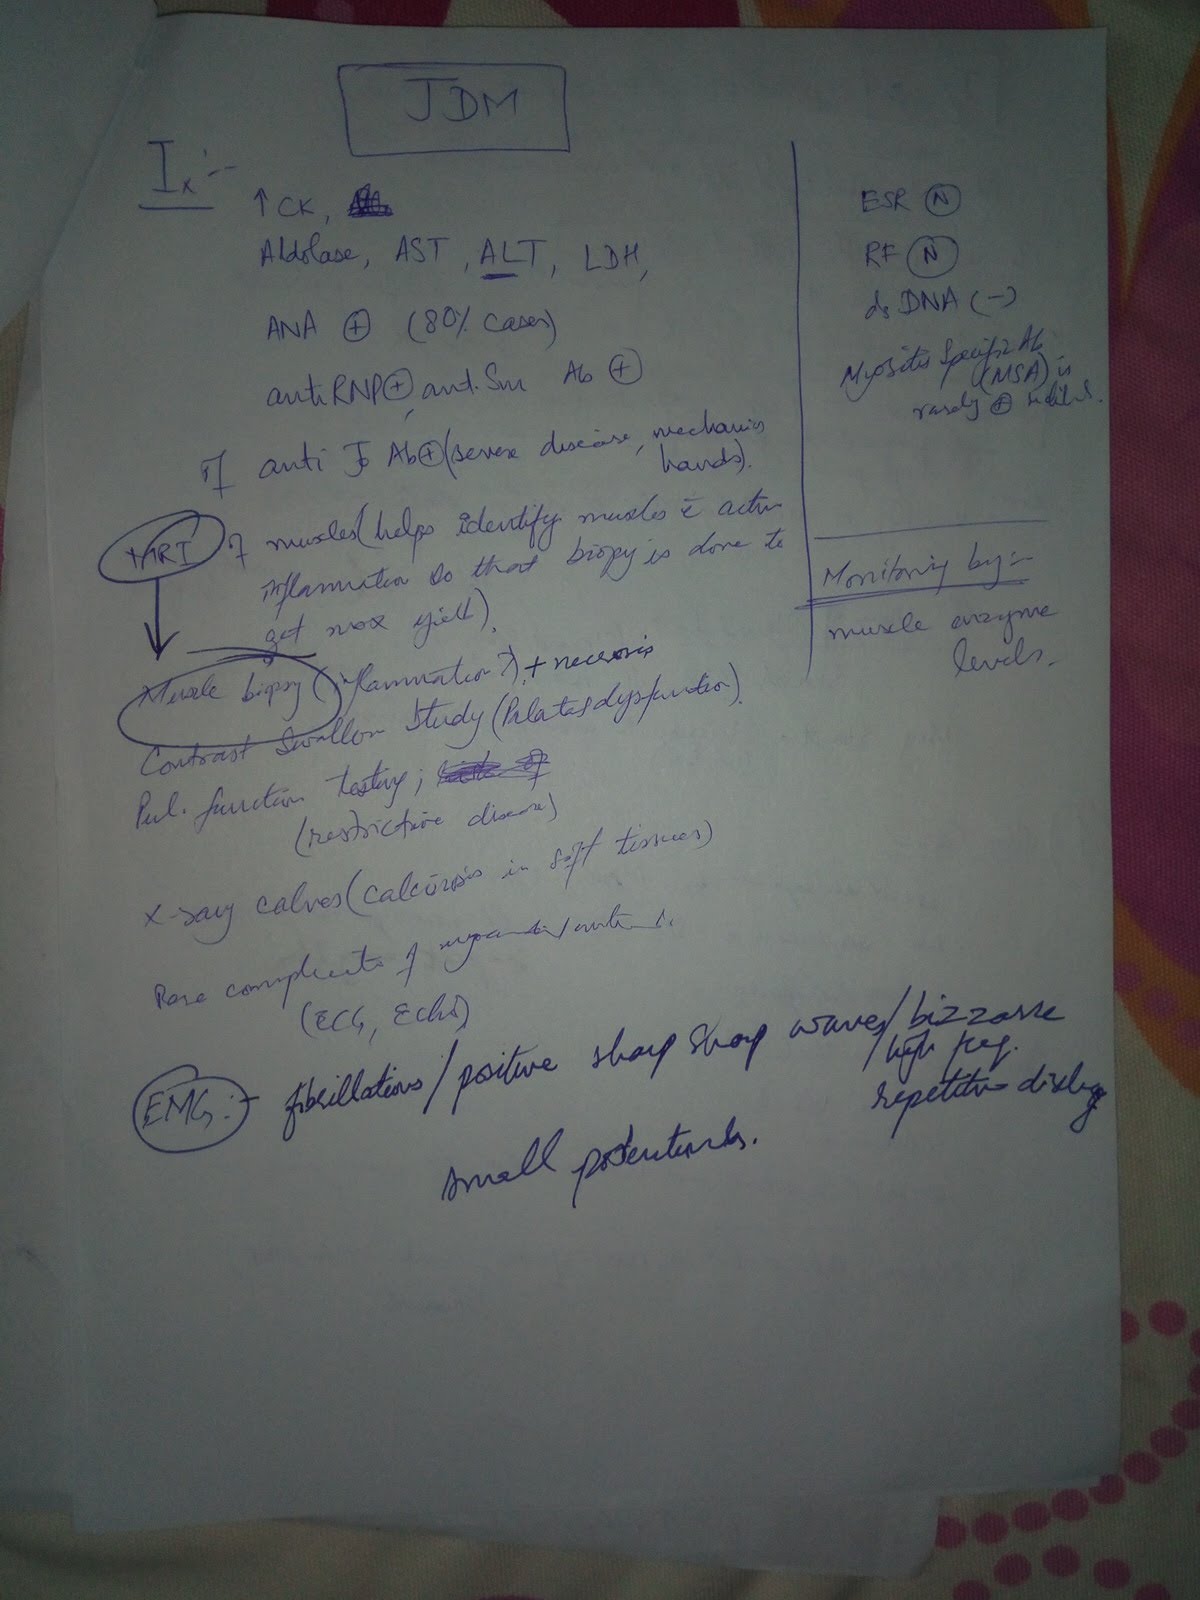 JDM
Ix:-
↑CK,
Aldolase, AST, ALT, LDH,
ANA ⊕ (80% cases)
anti RNP⊕, anti Sm Ab ⊕
If anti Jo Ab⊕(severe disease, mechanics
hands).
MRI of muscles (helps identify muscles c̄ active
inflammation so that biopsy is done to
get max yield).
Muscle biopsy (inflammation) + necrosis
Contrast Swallow Study (Palatal dysfunction).
Pul. function testing;
(restrictive disease)
X-ray calves (calcinosis in soft tissues)
Rare complicats of
(ECG, Echo)
EMG:- fibrillations/positive sharp sharp waves/bizzarre
high freq.
repetitive discharge
small potentials.
ESR Ⓝ
RF Ⓝ
ds DNA (-)
Myositis Specific Ab
(MSA) is
rarely ⊕
Monitoring by:-
muscle enzyme
levels.